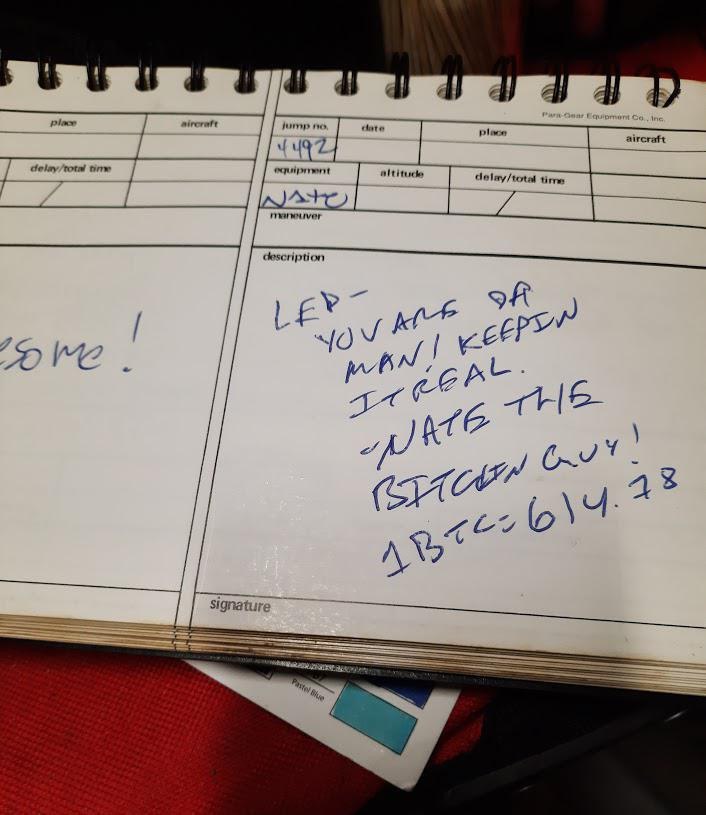 Para-Gear Equipment Co., Inc.
place aircraft
delay/total time
/
esome!
jump no. date place aircraft
4492
equipment altitude delay/total time
NATE /
maneuver
description
LED-
YOU ARE DA
MAN! KEEPIN
IT REAL.
-NATE THE
BITCHIN GUY!
1BTC=614.78
signature
Pastel Blue